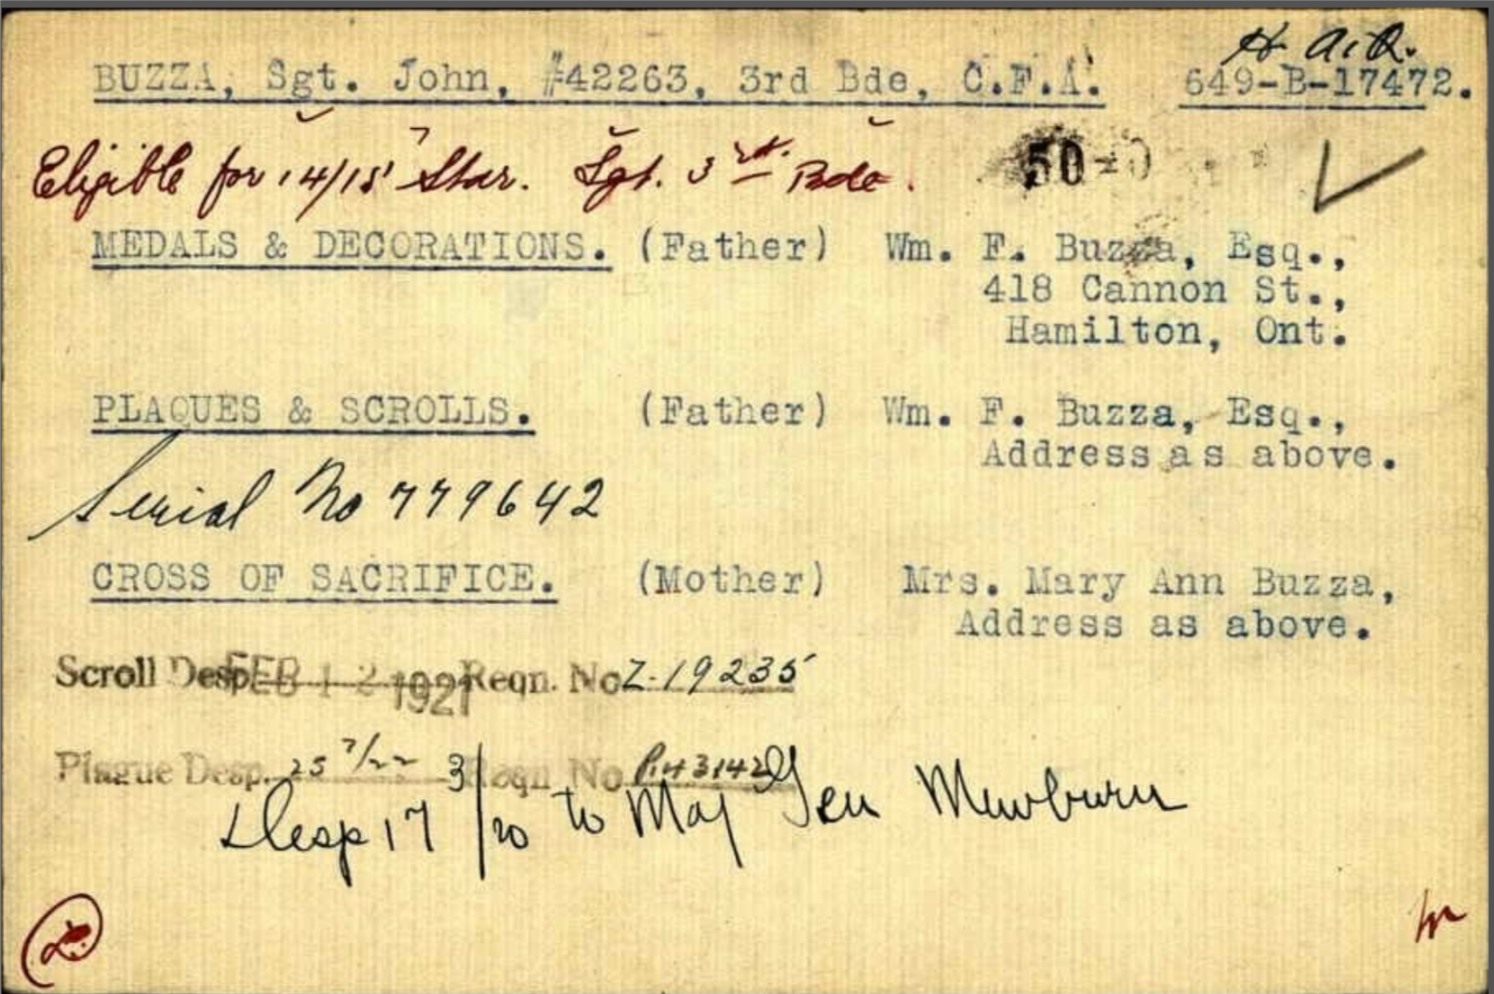 H. A. Q.
BUZZA, Sgt. John, #42263, 3rd Bde, C.F.A. 649-B-17472.
Eligible for 14/15 Star. Sgt. 3rd Bde.
50-
MEDALS & DECORATIONS. (Father) Wm. F. Buzza, Esq.,
418 Cannon St.,
Hamilton, Ont.
PLAQUES & SCROLLS. (Father) Wm. F. Buzza, Esq.,
Address as above.
Serial No 779642
CROSS OF SACRIFICE. (Mother) Mrs. Mary Ann Buzza,
Address as above.
Scroll Desp. FEB 12 1921 Reqn. No Z-19235
Plaque Desp. 25 7/22 Reqn No P43142
Desp 17 3/20 to Maj Gen Mewburn